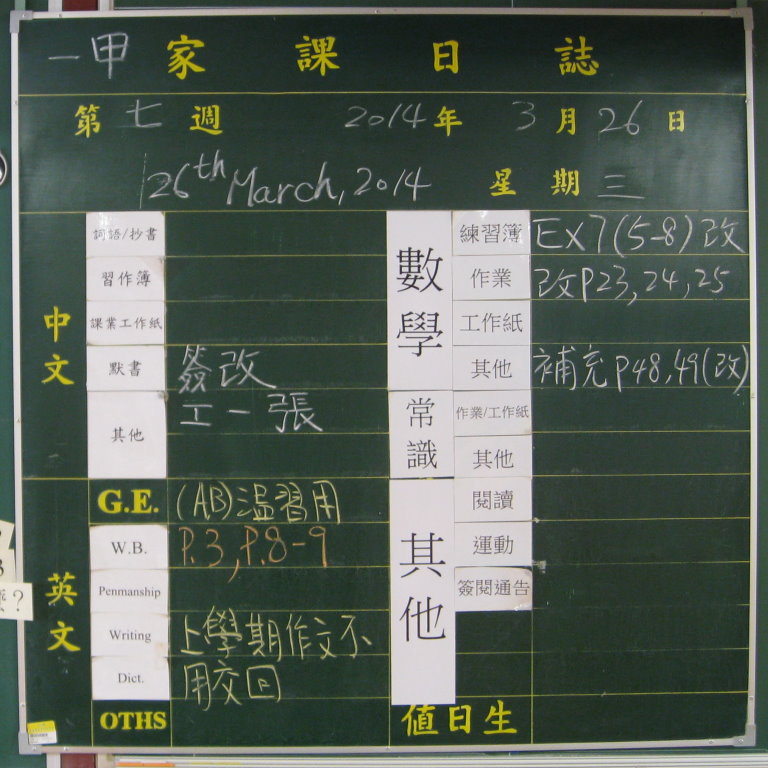 一甲 家課日誌
第七週 2014年3月26日
26th March, 2014 星期三
中文
詞語/抄書
習作簿
課業工作紙
默書 簽改
其他 工一張
英文
G.E. (AB)溫習用
W.B. P.3, P.8-9
Penmanship
Writing 上學期作文不
Dict. 用交回
OTHS
數學
練習簿 EX7(5-8)改
作業 改P23,24,25
工作紙
其他 補充P48,49(改)
常識
作業/工作紙
其他
其他
閱讀
運動
簽閱通告
值日生
?